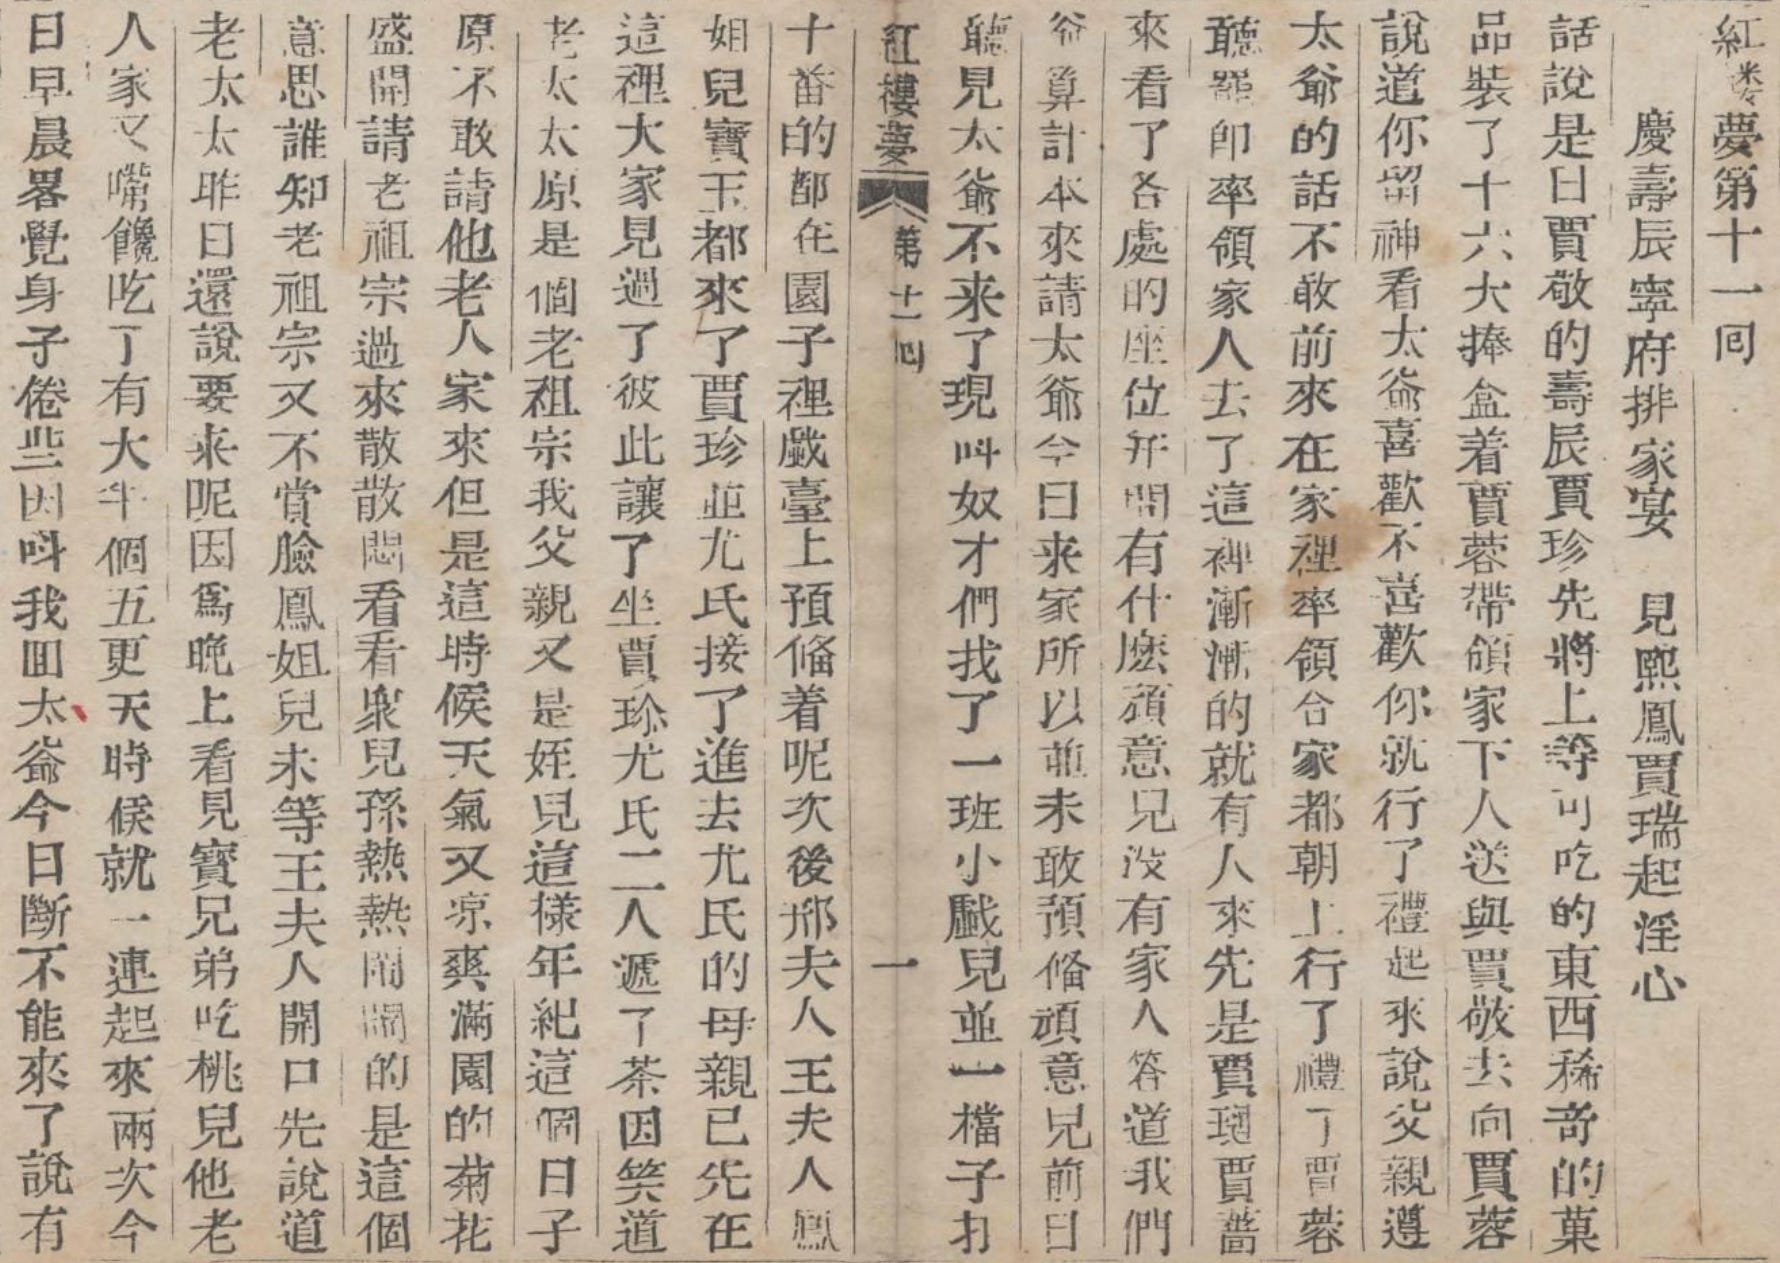 紅楼夢第十一回
慶壽辰寧府排家宴　見熙鳳賈瑞起淫心
話說是日賈敬的壽辰賈珍先將上等可吃的東西稀奇的菓
品裝了十六大捧盒着賈蓉帶領家下人送與賈敬去向賈蓉
說道你留神看太爺喜歡不喜歡你就行了禮起來說父親遵
太爺的話不敢前來在家裡率領合家都朝上行了禮了賈蓉
聽罷即率領家人去了這裡漸漸的就有人來先是賈璉賈薔
來看了各處的座位并問有什麽頑意兒沒有家人答道我們
爺算計本來請太爺今日来家所以並未敢預俻頑意兒前日
聽見太爺不来了現叫奴才們找了一班小戲兒並一檔子打
紅樓夢　第十一囘　一
十番的都在園子裡戲臺上預俻着呢次後邢夫人王夫人鳳
姐兒寶玉都來了賈珍並尤氏接了進去尤氏的母親已先在
這裡大家見過了彼此讓了坐賈珍尤氏二人遞了茶因笑道
老太太原是個老祖宗我父親又是姪兒這樣年紀這個日子
原不敢請他老人家來但是這時候天氣又凉爽滿園的菊花
盛開請老祖宗過來散散悶看看衆兒孫熱熱鬧鬧的是這個
意思誰知老祖宗又不賞臉鳳姐兒未等王夫人開口先說道
老太太昨日還說要来呢因爲晚上看見寶兄弟吃桃兒他老
人家又嘴饞吃了有大半個五更天時候就一連起來兩次今
日早晨畧覺身子倦些因叫我回太爺今日斷不能來了說有